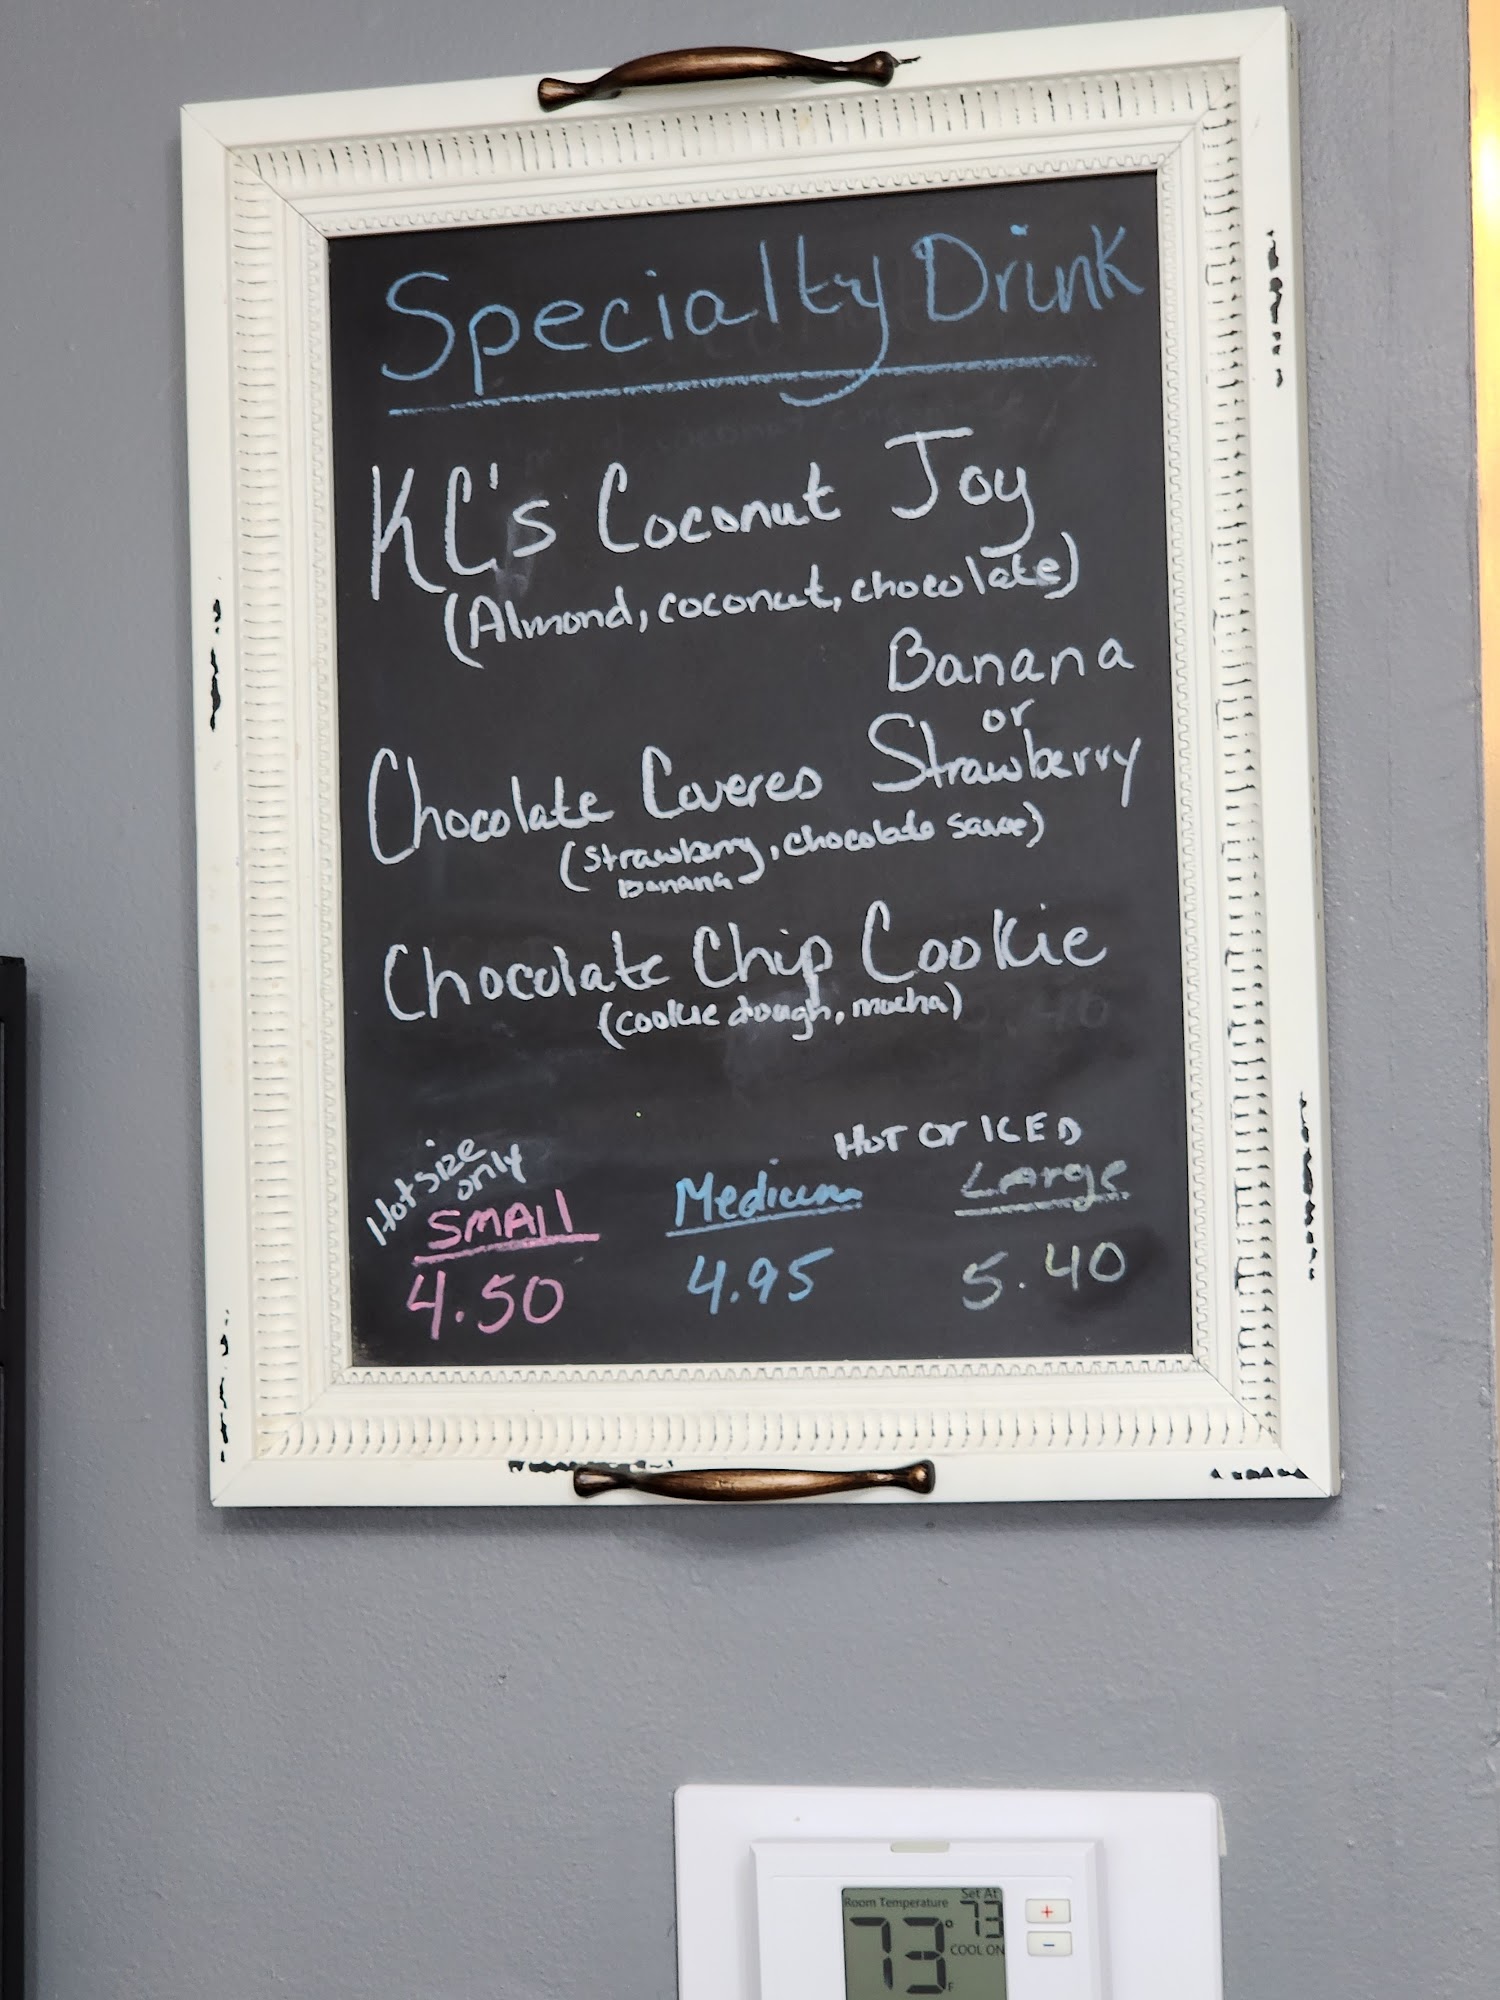 Specialty Drink
KC's Coconut Joy
(Almond, coconut, chocolate)
Banana
or
Chocolate Coveres Strawberry
(strawberry, chocolate sauce)
Banana
Chocolate Chip Cookie
(cookie dough, mocha)
Hot size
only
HOT Or ICED
SMAll
Medium
LArge
4.50
4.95
5.40
Room Temperature
Set At
73°F
73
COOL ON
+
-